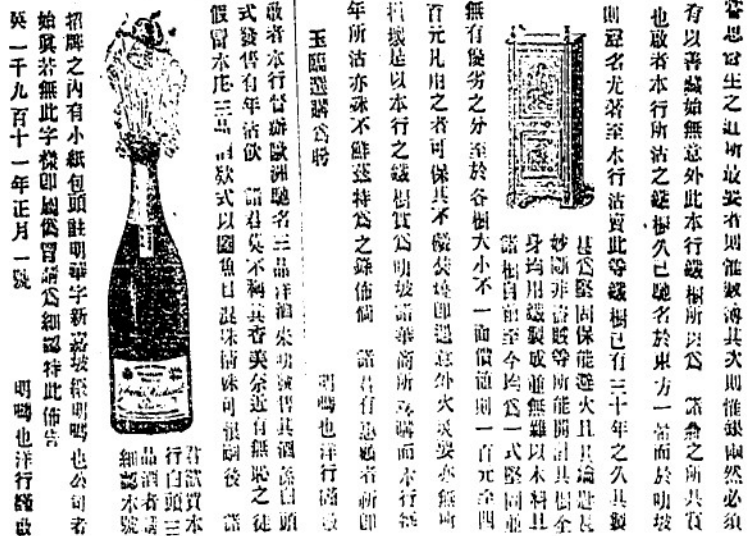 嘗思營生之道所最要者則惟數簿其次則惟銀兩然必須
有以善藏始無意外此本行鐵櫃所以爲 諸翁之所共賞
也啟者本行所沽之鐵櫃久已馳名於東方一帶而於叻坡
則聲名尤著至本行沽賣此等鐵櫃已有三十年之久其製
甚爲堅固保能避火且其鑰匙甚
妙斷非盜賊等所能開計其櫃全
身均用鐵製成並無雜以木料且
諸櫃自前至今均爲一式堅固並
無有優劣之分至於各櫃大小不一而價值則一百元至四
百元凡用之者可保其不懼焚燒即遇意外火災要亦無所
損壞是以本行之鐵櫃實爲叻坡諸華商所爭購而本行每
年所沽亦誠不鮮茲特爲之錄佈倘 諸君有惠顧者祈即
玉臨選購爲盼 明嗎也洋行謹啟
啟者本行督辦歐洲馳名三品洋酒來叻發售其酒係白頭
式發售有年沽飲 諸君莫不稱其香美奈近有無恥之徒
假冒本庄三品酒款式以圖魚目混珠情殊可恨嗣後 諸
君欲買本
行白頭三
品酒者請
細認本號
招牌之內有小紙包頭註明華字新嘉坡明嗎也公司者
始真若無此字樣即屬僞冒請爲細認特此佈告
英一千九百十一年正月一號 明嗎也洋行謹啟